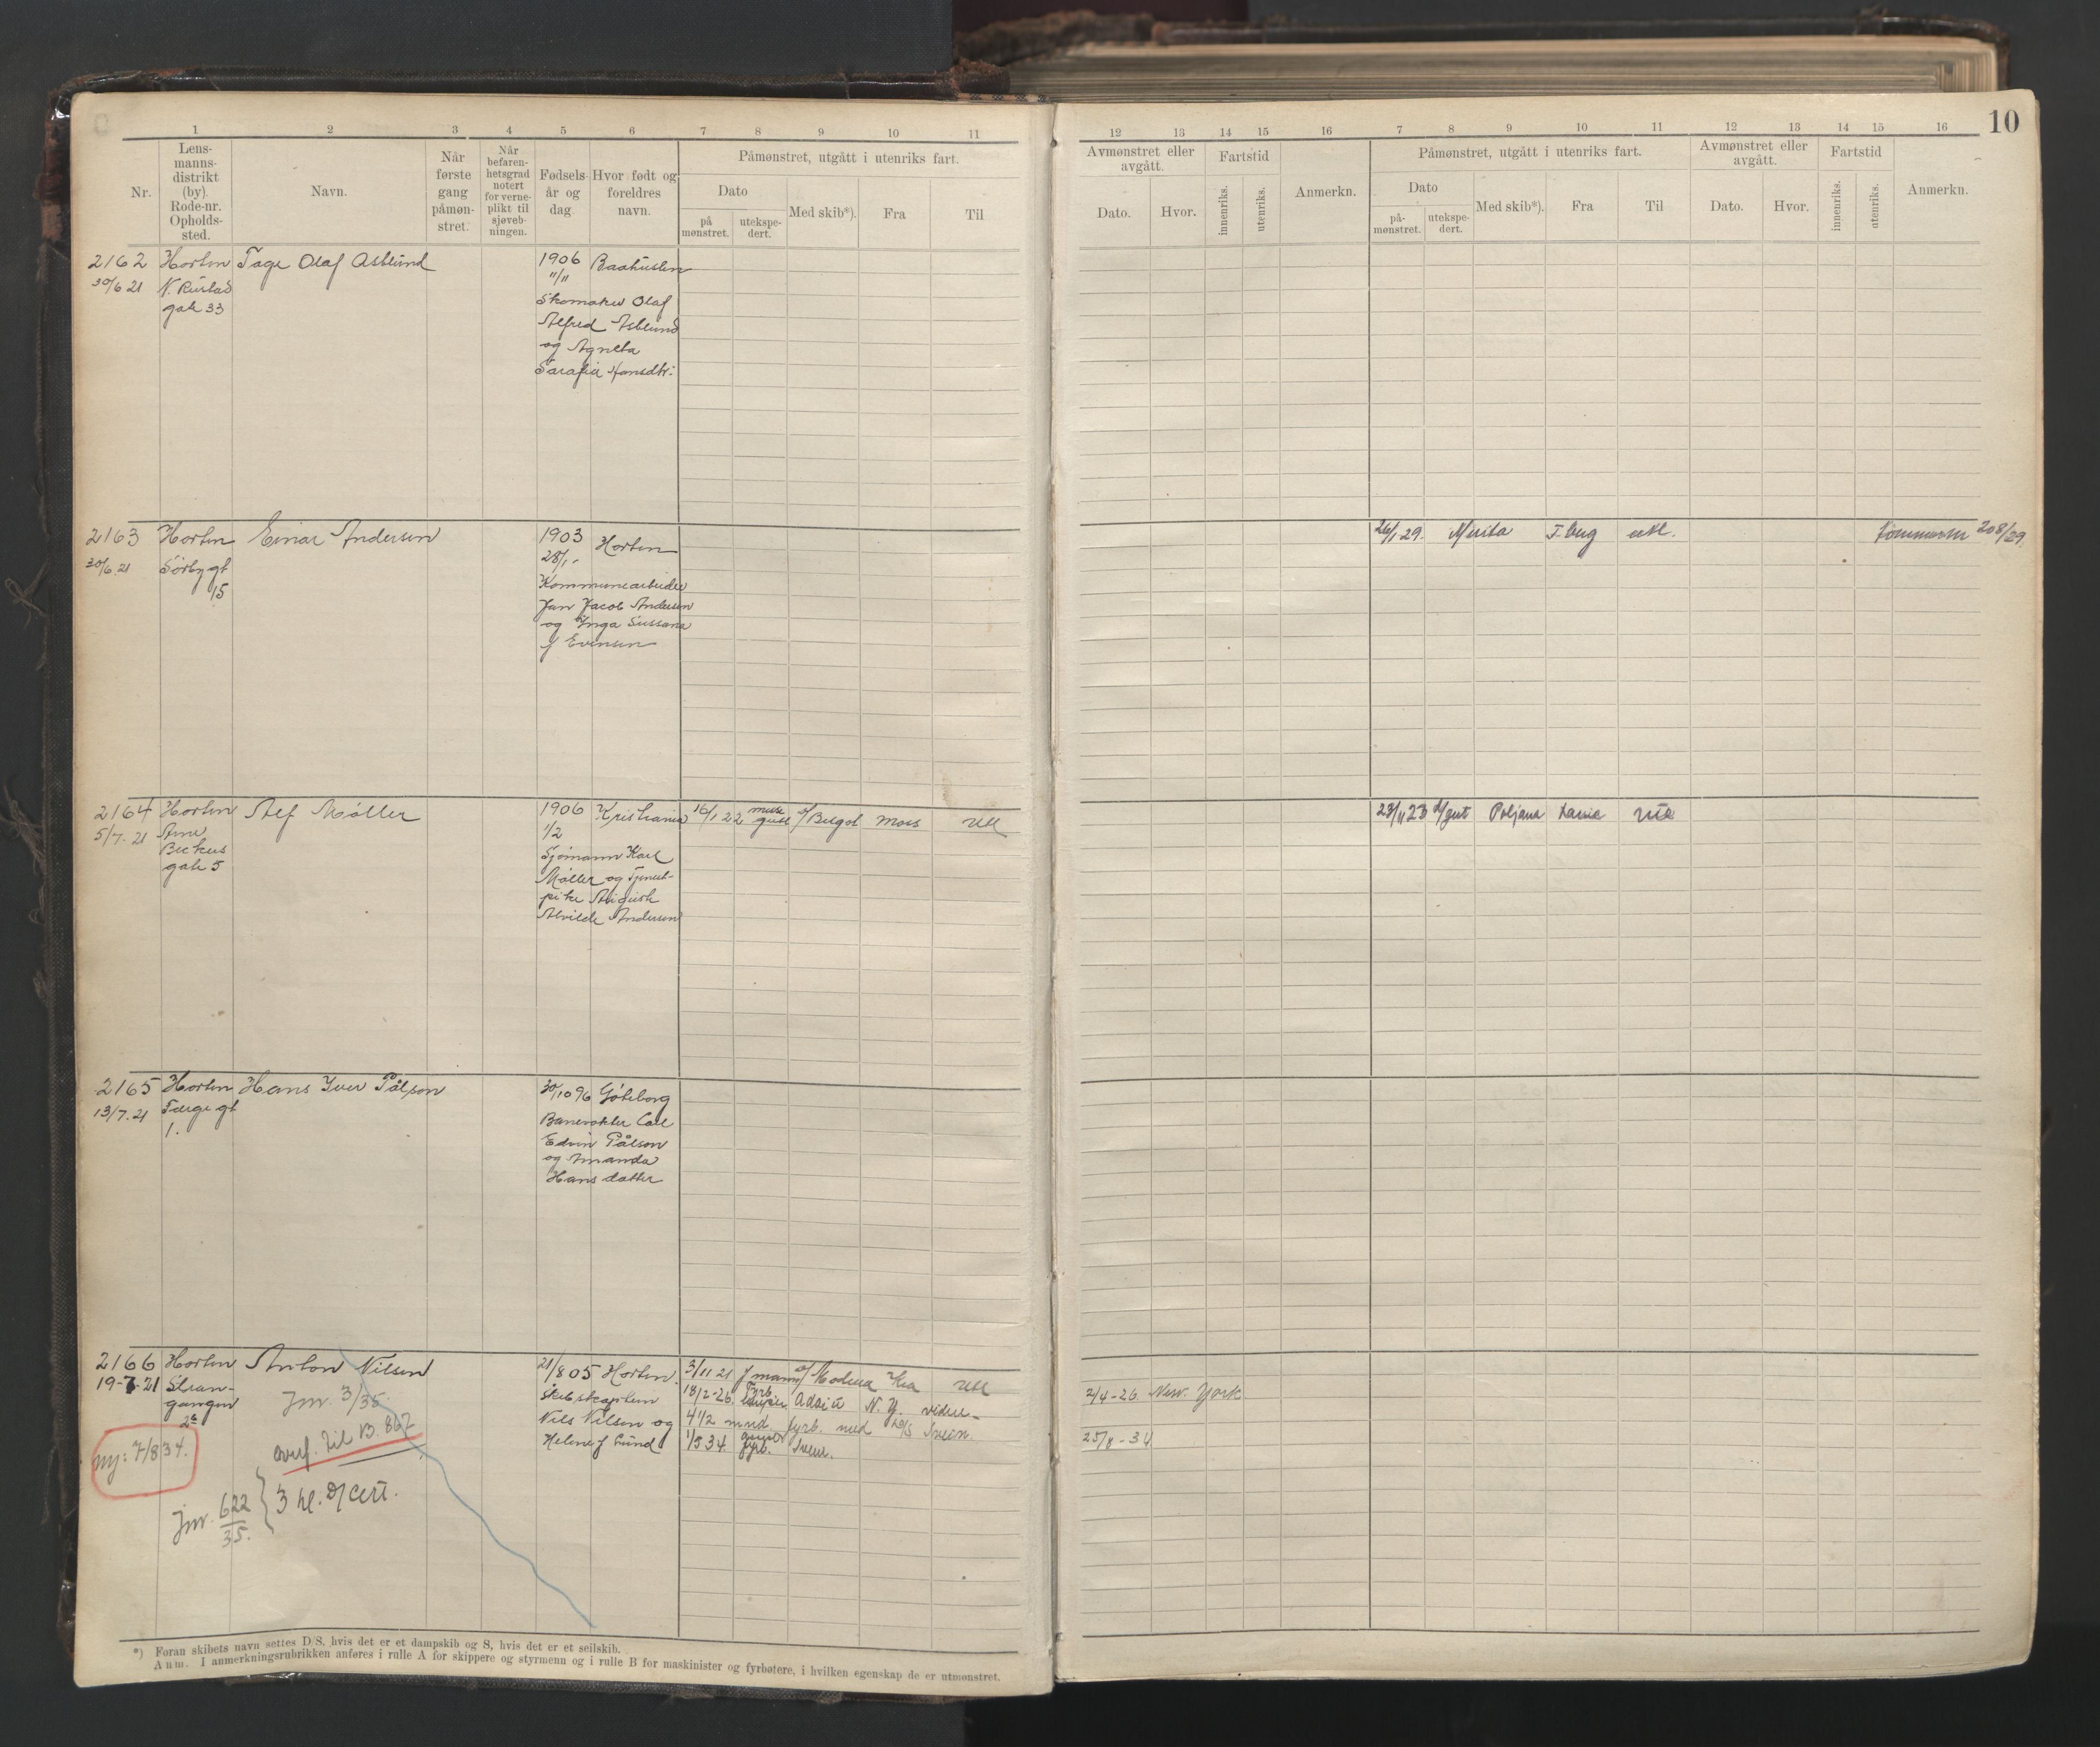 10
1 2 3 4 5 6 7 8 9 10 11
12 13 14 15 16 7 8 9 10 11 12 13 14 15 16
Nr.
Lens-
manns-
distrikt
(by).
Rode-nr.
Opholds-
sted.
Navn.
Når
første
gang
påmøn-
stret.
Når
befaren-
hetsgrad
notert
for verne-
plikt til
sjøveb-
ningen.
Fødsels-
år og
dag
Hvor født og
foreldres
navn.
Påmønstret, utgått i utenriks fart.
Dato
på
mønstret.
utekspe-
dert.
Med skib*).
Fra
Til
Avmønstret eller
avgått.
Dato.
Hvor.
Fartstid
innenriks.
utenriks.
Anmerkn.
Påmønstret, utgått i utenriks fart.
Dato
på-
mønstret.
utekspe-
dert.
Med skib*).
Fra
Til
Avmønstret eller
avgått.
Dato.
Hvor.
Fartstid
innenriks.
utenriks.
Anmerkn.
2162 Horten Tage Olaf Asblund 1906 Baahuslen
30/6 21 N. Rustad 11/11
gate 33
Skomaker Olaf
Alfred Asblund
og Agneta
Sarafia Hansdtr.
2163 Horten Einar Andersen 1903 Horten
30/6 21 Sörby gt 28/1
15
Kommunearbeider
Jan Jacob Andersen
og Inga Sussana
f Evensen
26/1 29. Merita T.berg utl. 208/29
2164 Horten Alf Møller 1906 Kristiania 16/1 22 Moss Utl
5/7. 21 Arne 1/2
Beckus
gate 5
Sjømann Karl
Møller og Tjenest-
pike Auguste
Alvilde Andersen
23/11 23 Poljana
2165 Horten Hans Iver Pålson 30/10 96 Göteborg
13/7. 21 Færge gt
1.
Banevokter Carl
Edvin Pålson
og Amanda
Hansdatter
2166 Horten Anton Nilsen 21/8 05 Horten. 3/11 21 J mann Modena Kra Utl
19-7-21 Stran-
gangen
2b
Skibskaptein
Nils Nilsen og
Helene f Lund
18/2-26 Fyrb. N.Y. videre
4 1/2 mnd. fyrb. med Svein.
1/5 34 fyrb. Svein.
2/4-26 New. York
25/8-34
Jnr. 3/35
overf. til B. 867
ny: 7/8 34.
Jnr. 622/35. } 3 hl. D/cert.
*) Foran skibets navn settes D/S, hvis det er et dampskib og S, hvis det er et seilskib.
Anm. I anmerkningsrubrikken anføres i rulle A for skippere og styrmenn og i rulle B for maskinister og fyrbøtere, i hvilken egenskap de er utmønstret.